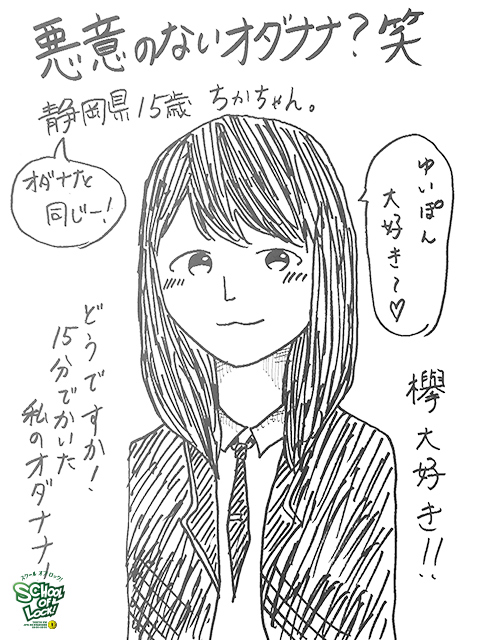 悪意のないオダナナ?笑
静岡県15歳 ちかちゃん。
オダナナと
同じー!
ゆいぽん
大好き〜♡
欅大好き!!
どうですか!
15分でかいた
私のオダナナ!
スクール オブ ロック!
SCHOOL
OF
LOCK!